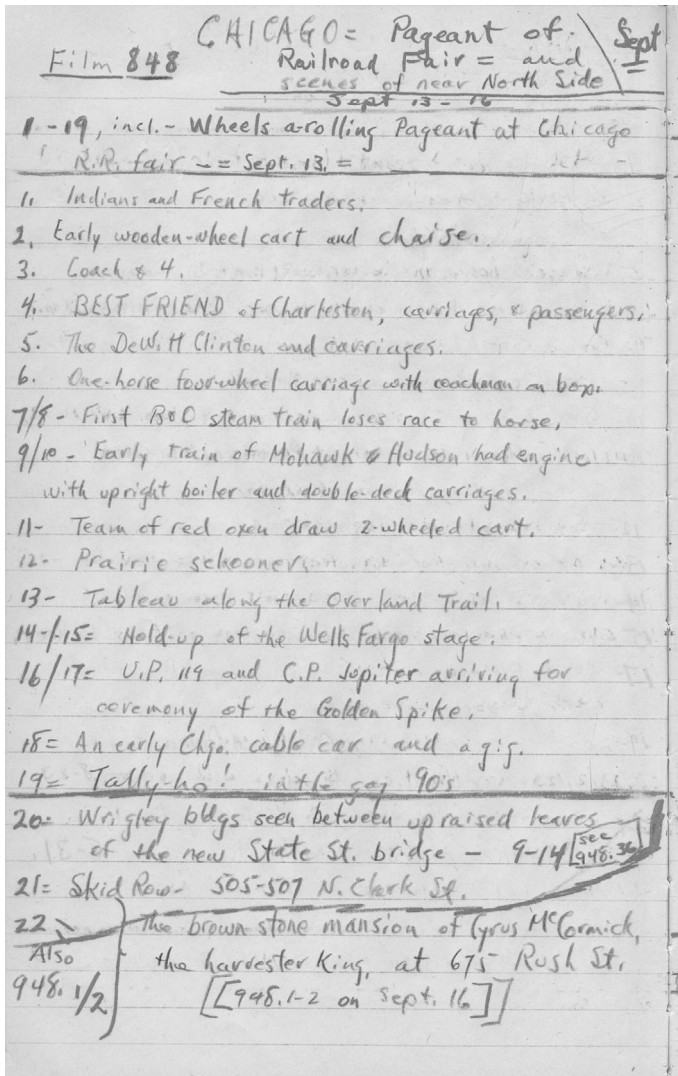 CHICAGO = Pageant of
Film 848
Railroad Fair = and
scenes of near North Side
Sept 13 - 16
Sept
I
1 - 19, incl. - Wheels a-rolling Pageant at Chicago
R.R. fair - = Sept. 13. =
1. Indians and French traders.
2. Early wooden-wheel cart and chaise.
3. Coach & 4.
4. BEST FRIEND of Charleston, carriages, & passengers.
5. The DeWitt Clinton and carriages.
6. One-horse four-wheel carriage with coachman on box.
7/8 - First B&O steam train loses race to horse.
9/10 - Early train of Mohawk & Hudson had engine
with upright boiler and double-deck carriages.
11 - Team of red oxen draw 2-wheeled cart.
12 - Prairie schooner.
13 - Tableau along the Overland Trail.
14-/-15 = Hold-up of the Wells Fargo stage.
16/17 = U.P. 119 and C.P. Jupiter arriving for
ceremony of the Golden Spike.
18 = An early Chgo. cable car and a gig.
19 = Tally-ho! in the gay '90's
20 = Wrigley bldgs seen between upraised leaves
of the new State St. bridge - 9-14 [see
948.36]
21 = Skid Row - 505-507 N. Clark St.
22
Also
948.1/2
The brown stone mansion of Cyrus McCormick,
the harvester King, at 675 Rush St.
[[948.1-2 on Sept. 16]]